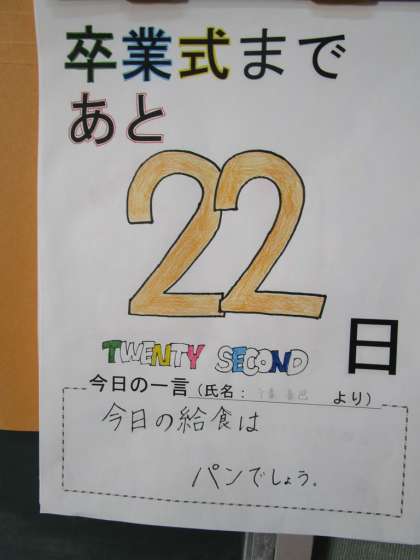 卒業式まで
あと
22
日
TWENTY SECOND
今日の一言(氏名: より)
今日の給食は
パンでしょう。